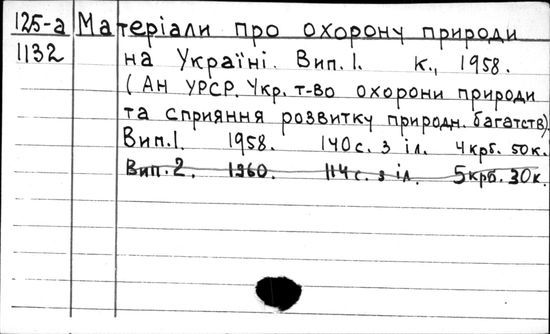 125-а Матеріали про охорону природи
1132 на Україні. Вип. 1. К., 1958.
( Ан УРСР. Укр. т-во охорони природи
та сприяння розвитку природн. багатств)
Вип. 1. 1958. 140 с. з іл. 4 крб. 50 к.
Вип. 2. 1960. 114 с. з іл. 5 крб. 30 к.